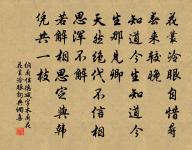 花叢冷眼自惜尋
春來較晚知道今
生知道今
生那見卿
天然絕代不信相
思渾不解
若解相思定與韓
憑共一枝
納蘭性德減字木蘭花
花叢冷眼詞典網書